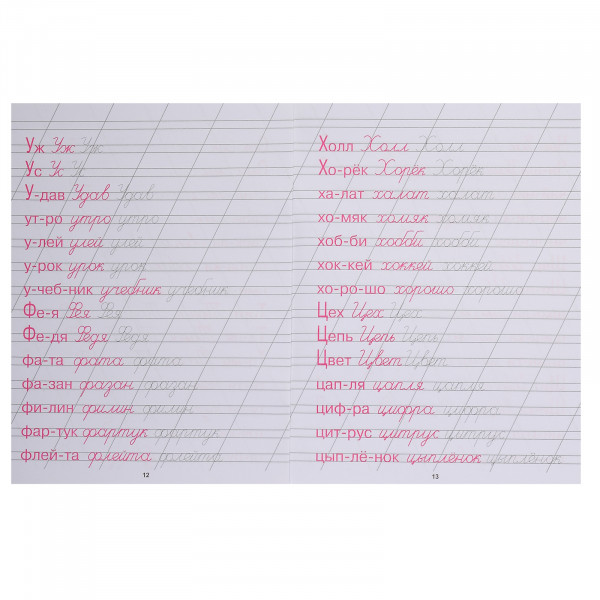 Уж Уж Уж
Ус Ус Ус
У-дав Удав Удав
ут-ро утро утро
у-лей улей улей
у-рок урок урок
у-чеб-ник учебник учебник
Фе-я Фея Фея
Фе-дя Федя Федя
фа-та фата фата
фа-зан фазан фазан
фи-лин филин филин
фар-тук фартук фартук
флей-та флейта флейта
12
Холл Холл Холл
Хо-рёк Хорёк Хорёк
ха-лат халат халат
хо-мяк хомяк хомяк
хоб-би хобби хобби
хок-кей хоккей хоккей
хо-ро-шо хорошо хорошо
Цех Цех Цех
Цепь Цепь Цепь
Цвет Цвет Цвет
цап-ля цапля цапля
циф-ра цифра цифра
цит-рус цитрус цитрус
цып-лё-нок цыплёнок цыплёнок
13